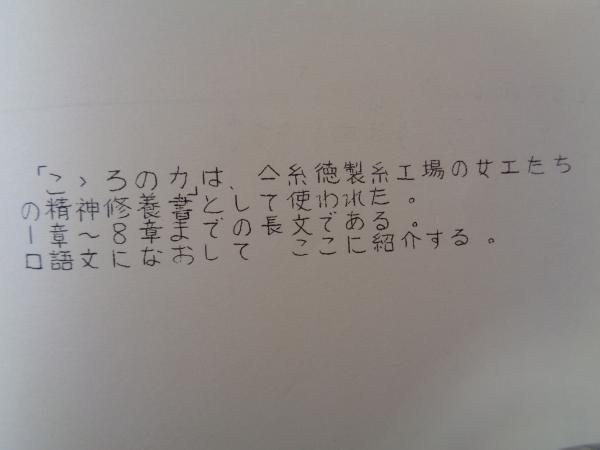 「こゝろの力」は、仝糸徳製糸工場の女工たち
の精神修養書として使われた。
1章~8章までの長文である。
口語文になおして ここに紹介する。